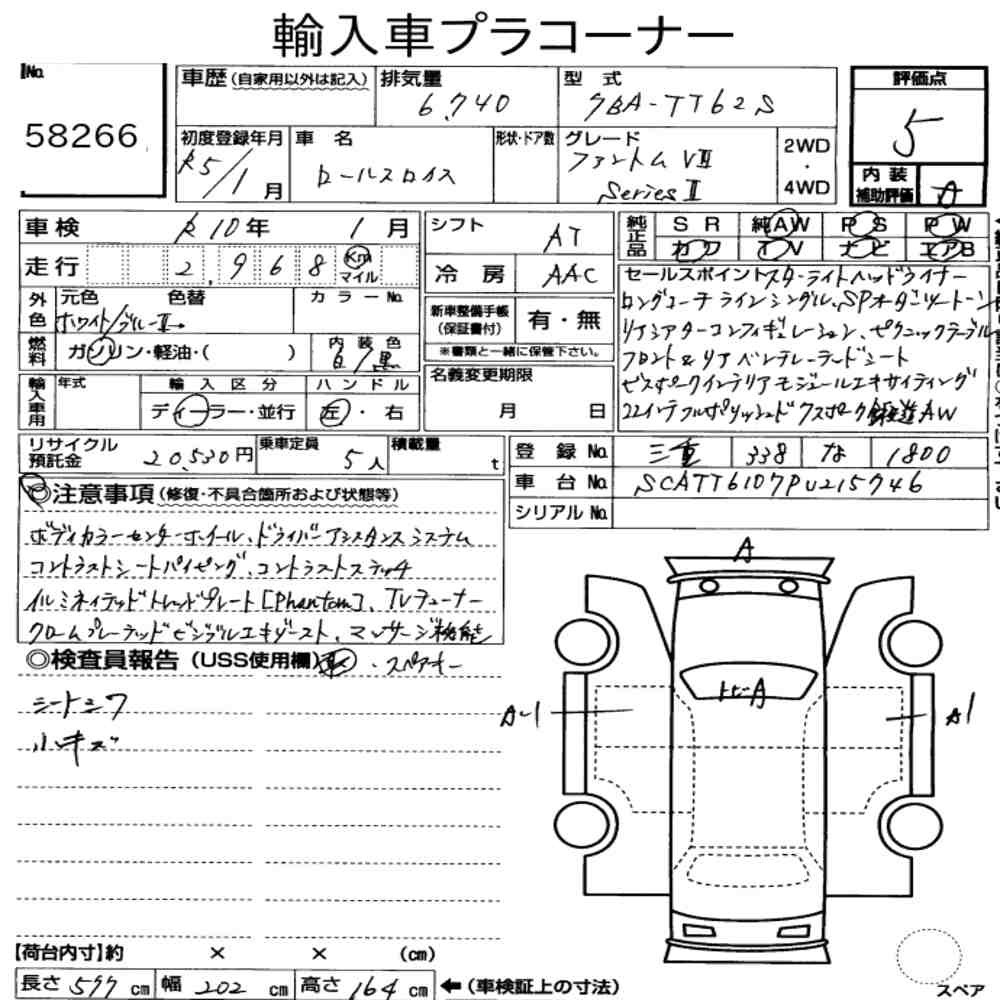 輸入車プラコーナー
No.
58266
車歴(自家用以外は記入)
排気量
6,740
型 式
7BA-TT62S
評価点
5
初度登録年月
R5/1月
車 名
ロールスロイス
形状・ドア数
グレード
ファントムVIII
Series II
2WD
・
4WD
内装
補助評価
A
車検
R10年 1月
シフト
AT
純正品
SR 純AW PS PW
カワ TV ナビ エアB
走行
2,968
Km
マイル
冷房
AAC
外色
元色 色替
ホワイト/ブルーII→
カラーNo.
新車整備手帳
(保証書付)
有・無
※書類と一緒に保管下さい。
セールスポイント スターライトヘッドライナー
ロングコーチラインシングル、SPオーダーツートーン
リアシアターコンフィギュレーション、ピクニックテーブル
フロント&リアベンチレーテッドシート
ビスポークインテリアモジュールエキサイティング
22インチフルポリッシュド7スポーク鍛造AW
燃料
ガソリン・軽油・( )
内装色
白/黒
輸入車用
年式
輸入区分
ディーラー・並行
ハンドル
左・右
名義変更期限
月 日
リサイクル
預託金
20,530円
乗車定員
5人
積載量
t
登録No.
三重 338 な 1800
車台No.
SCATT6107PU215746
シリアルNo.
◎注意事項(修復・不具合箇所および状態等)
ボディカラーセンターホイール、ドライバーアシスタンスシステム
コントラストシートパイピング、コントラストステッチ
イルミネイテッドトレッドプレート[Phantom]、TVチューナー
クロームプレーテッドビジブルエキゾースト、マッサージ機能
◎検査員報告(USS使用欄)
・スペアキー
シートシワ
小キズ
A
トビA
A-1
A1
【荷台内寸】約 × × (cm)
長さ 577 cm 幅 202 cm 高さ 164 cm ←(車検証上の寸法)
スペア